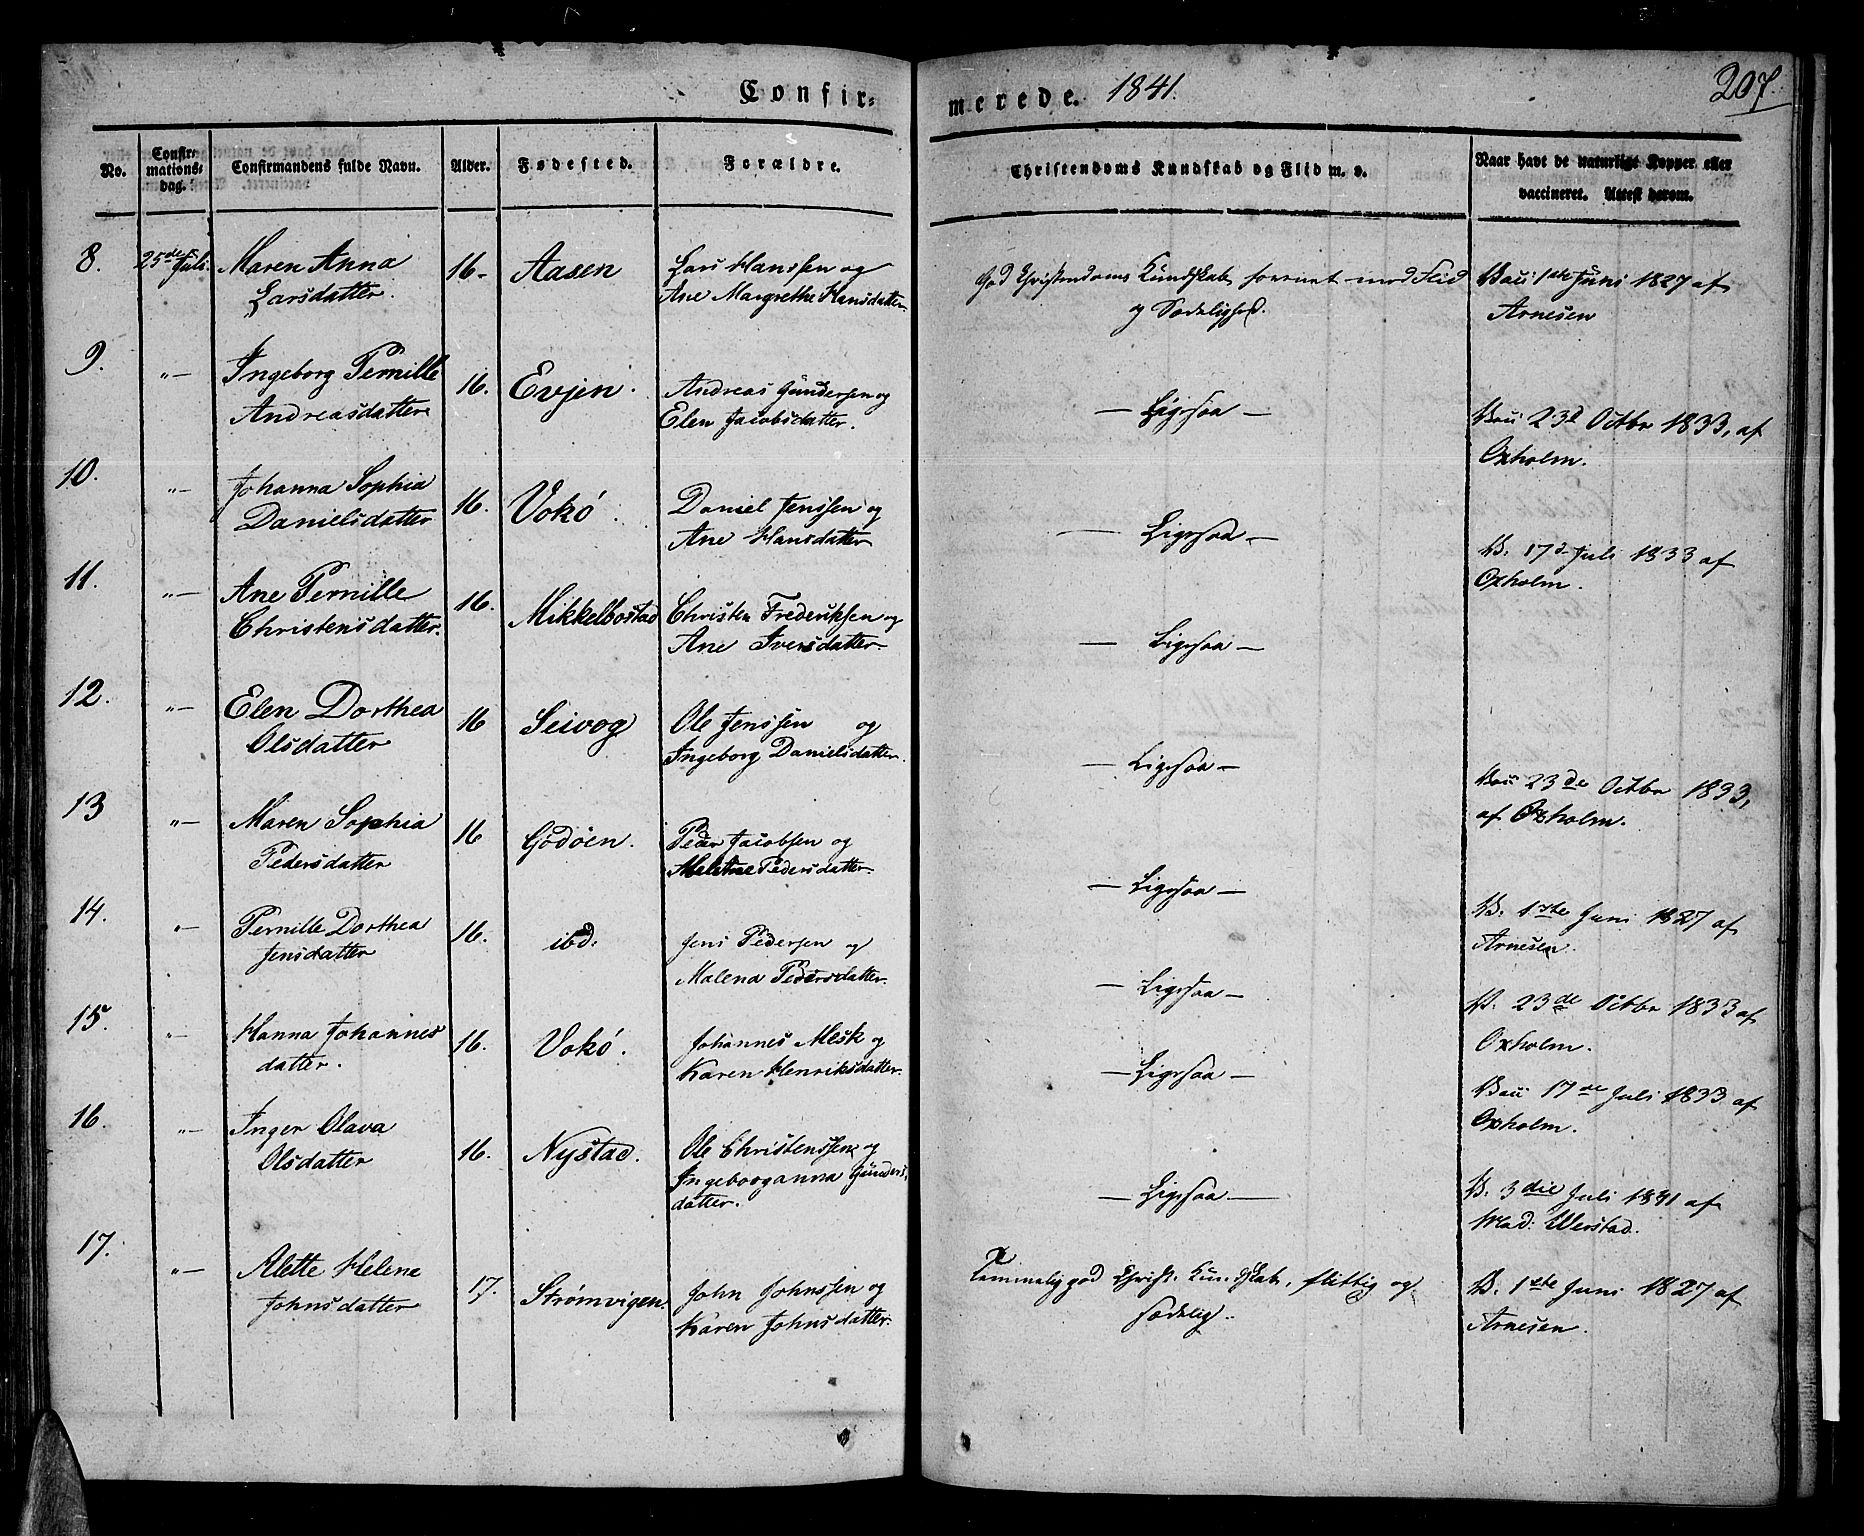 Confir=
merede. 1841.
207.
No.
Confir-
mations-
dag.
Confirmandens fulde Navn.
Alder.
Fødested.
Forældre.
Christendoms Kundskab og Flid m. v.
Naar havt de naturlige Kopper eller
vaccineret. Attest derom.
8. 25de Juli. Maren Anna 16- Aasen Lars Hanssen og God Christendoms Kundskab forenet med Flid Vac: 1ste Juni 1827 af
Larsdatter. Ane Margrethe Hansdatter og Sædelighed. Arnesen
9. "— Ingeborg Pernille 16. Evjen. Andreas Gundersen og — Ligesaa —
Andreasdatter Elen Jacobsdatter. Vac: 23d Octbr 1833, af
Oxholm.
10. "— Johanna Sophia 16. Vokö. Daniel Jenssen og — Ligesaa —
Danielsdatter Ane Hansdatter V. 17d Juli 1833 af
Oxholm.
11. "— Ane Pernille 16. Mikkelbostad Christen Frederiksen og — Ligesaa —
Christensdatter. Ane Iversdatter
12. "— Elen Dorthea 16 Seivog Ole Jenssen og — Ligesaa —
Olsdatter Ingeborg Danielsdatter. Vac: 23de Octbr 1833,
af Oxholm.
13 "— Maren Sophia 16 Godöen. Peder Jacobsen og — Ligesaa —
Pedersdatter Pedersdatter. V. 1ste Juni 1827 af
Arnesen.
14. "— Pernille Dorthea 16. ibd: Jens Pedersen og — Ligesaa —
Jensdatter Malena Pedersdatter. V. 23de Octbr 1833 af
Oxholm.
15. "— Hanna Johannes 16. Vokö. Johannes Mesk og — Ligesaa —
datter. Karen Henriksdatter. Vac: 17de Juli 1833 af
Oxholm.
16. "— Inger Olava 16. Nystad. Ole Christenssen og — Ligesaa —
Olsdatter Ingeborganna Gunders V. 3die Juli 1841 af
datter. Mad: Werstad.
17. "— Alette Helena 17. Strømvigen. John Johnssen og Temmelig god Christ. Kundskab, flittig og V. 1ste Juni 1827 af
Johnsdatter Karen Johnsdatter. sædelig. Arnesen.